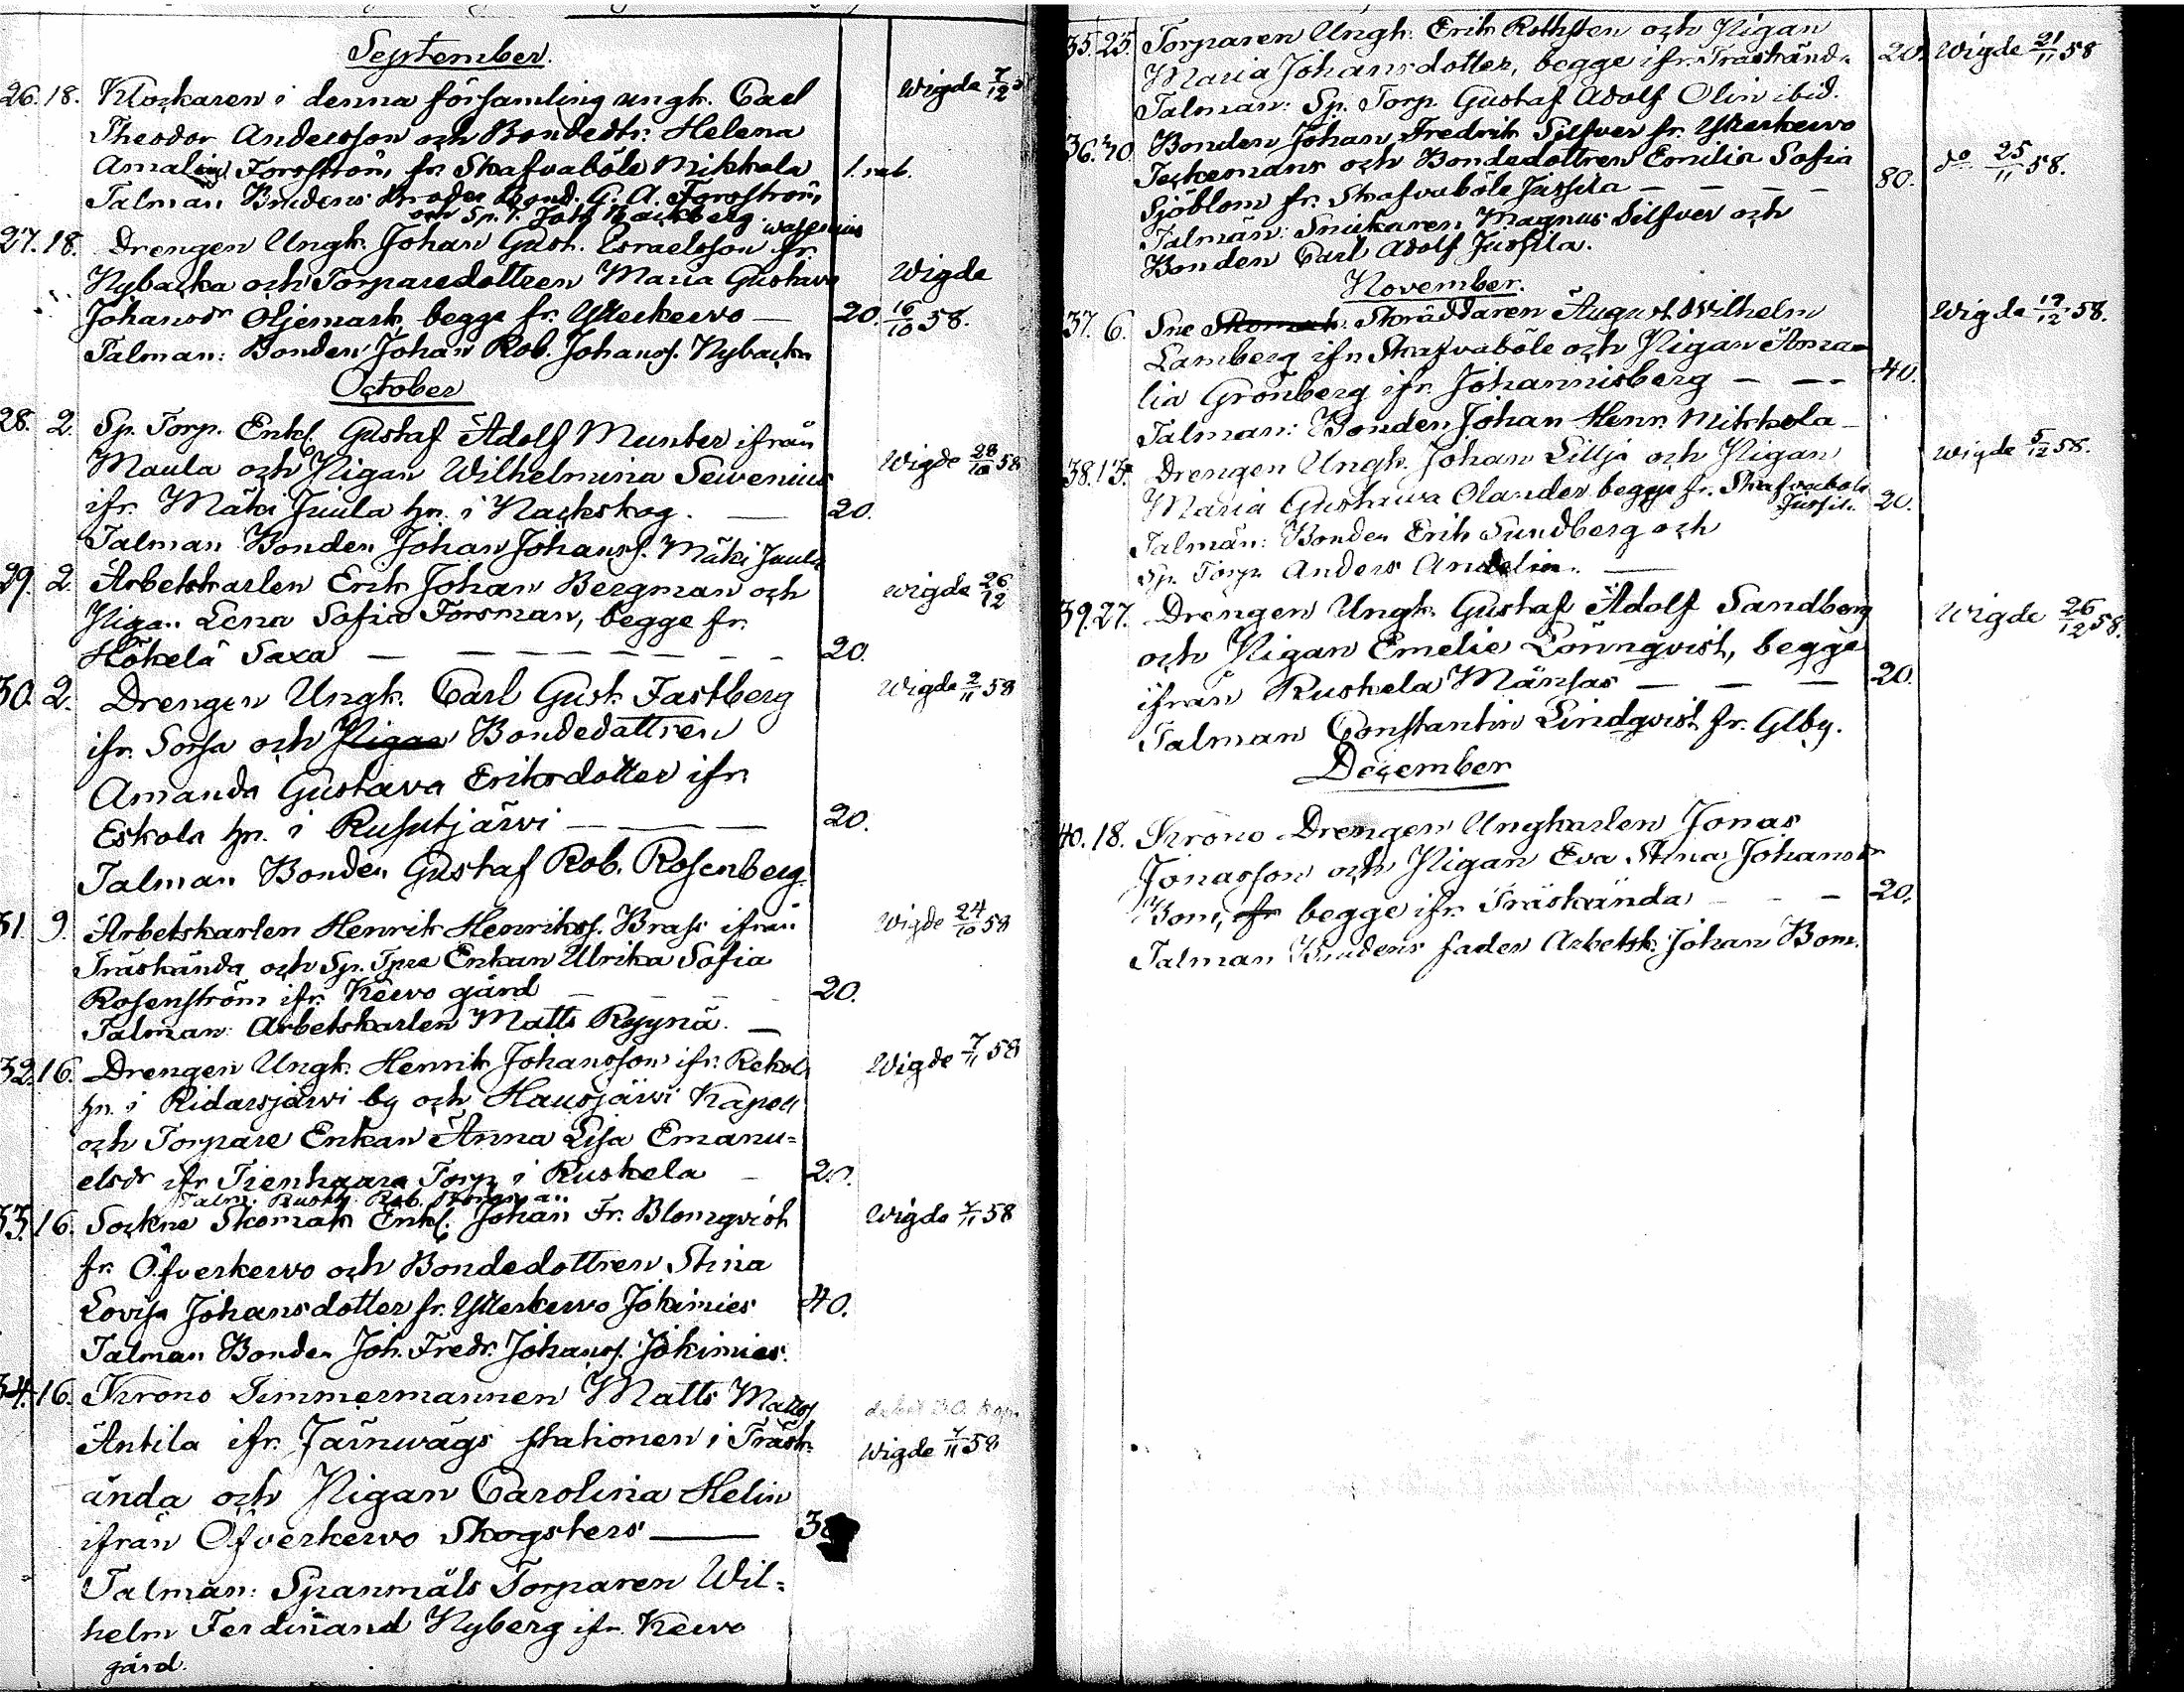 September.
26. 18. Klockaren i denna församling ungk. Carl Wigde 7/12
Theodor Andersson och Bondedtr. Helena
Amalia Forsström, fr. Skafvaböle Mikkola 1. rub.
Talman Brudens Broder Bond. G. A. Forsström,
och Sp. T. Joh. Backberg
27. 18. Drengen Ungk. Johan Gust. Esraelsson fr.
Nybacka och Torparedottren Maria Gustava Wigde
Johansdr Öljemark, begge fr. Ytterkervo — 20. 16/10 58.
Talman: Bonden Johan Rob. Johanss. Nybacka
October
28. 2. Sp. Torp. Enkl. Gustaf Adolf Munter ifrån
Maula och Pigan Wilhelmina Sewenius Wigde 28/10 58
ifr. Mäki Juula hn. i Nackskog. — 20.
Talman Bonden Johan Johanss. Mäki Juula
29. 2. Arbetskarlen Erik Johan Bergman och wigde 26/12
Pigan Lena Sofia Forsman, begge fr.
Hökelä Saxa — — — — — — — 20.
30. 2. Drengen Ungk. Carl Gust. Fastberg Wigde 2/11 58
ifr. Sorsa och Pigan Bondedottren
Amanda Gustava Eriksdotter ifr.
Eskola hn. i Rusutjärvi — — — 20.
Talman Bonden Gustaf Rob. Rosenberg.
31. 9. Arbetskarlen Henrik Henrikss. Brass ifrån Wigde 24/10 58
Träskända och Sp. Tpre Enkan Ulrika Sofia
Rosenström ifr. Kervo gård — — — 20.
Talman: Arbetskarlen Matts Ryynä. —
32. 16. Drengen Ungk. Henrik Johansson ifr. Rekola Wigde 7/11 58
hn. i Ridasjärvi by och Hausjärvi Kapell
och Torpare Enkan Anna Lisa Emanu=
elsdr ifr Tienhaara Torp i Ruskela — 20.
Talm. Rusth. Rob.
33. 16. Sockne Skomak. Enkl. Johan Fr. Blomqvist Wigde 7/11 58
fr. Öfverkervo och Bondedottren Stina
Lovisa Johansdotter fr. Ytterkervo Jokimies 40.
Talman Bonden Joh. Fredr. Johanss. Jokimies.
34. 16. Krono Timmermannen Matts Matss
Antila ifr. Järnwägs stationen i Träsk- Wigde 7/11 58
ända och Pigan Carolina Helin
ifrån Öfverkervo Skogsters —
Talman: Spanmåls Torparen Wil=
helm Ferdinand Nyberg ifr. Kervo
gård.
35. 25. Torparen Ungk. Erik Rothsten och Pigan 20. Wigde 21/11 58
Maria Johansdotter, begge ifr. Träskänd.
Talman: Sp. Torp. Gustaf Adolf Olin ibid.
36. 30. Bonden Johan Fredrik Silfver fr. Ytterkervo
Teckomans och Bondedottren Emilia Sofia do 25/11 58.
Sjöblom fr. Skafvaböle Jussila — — — — 80.
Talmän: Snickaren Magnus Silfver och
Bonden Carl Adolf Jussila.
November.
37. 6. Sne Skomak. Skräddaren August Wilhelm Wigde 19/12 58.
Lamberg ifr. Skafvaböle och Pigan Ama=
lia Grönberg ifr. Johannisberg — — 40.
Talman: Bonden Johan Henr. Mikkola —
38. 13. Drengen Ungk. Johan Lillja och Pigan wigde 5/12 58.
Maria Gustava Olander begge fr. Skafvaböle
Jussila 20.
Talmän: Bonden Erik Sundberg och
Sp. Torp. Anders Andelin. —
39. 27. Drengen Ungk. Gustaf Adolf Sandberg Wigde 26/12 58.
och Pigan Emelie Lönnqvist, begge
ifrån Ruskela Mänsas — — — 20.
Talman Constantin Lindqvist fr. Glby.
December
40. 18. Krono Drengen Ungkarlen Jonas
Jonasson och Pigan Eva Stina Johansdr
Bom, fr begge ifr. Träskända — — — 20.
Talman Brudens fader Arbetsk. Johan Bom.